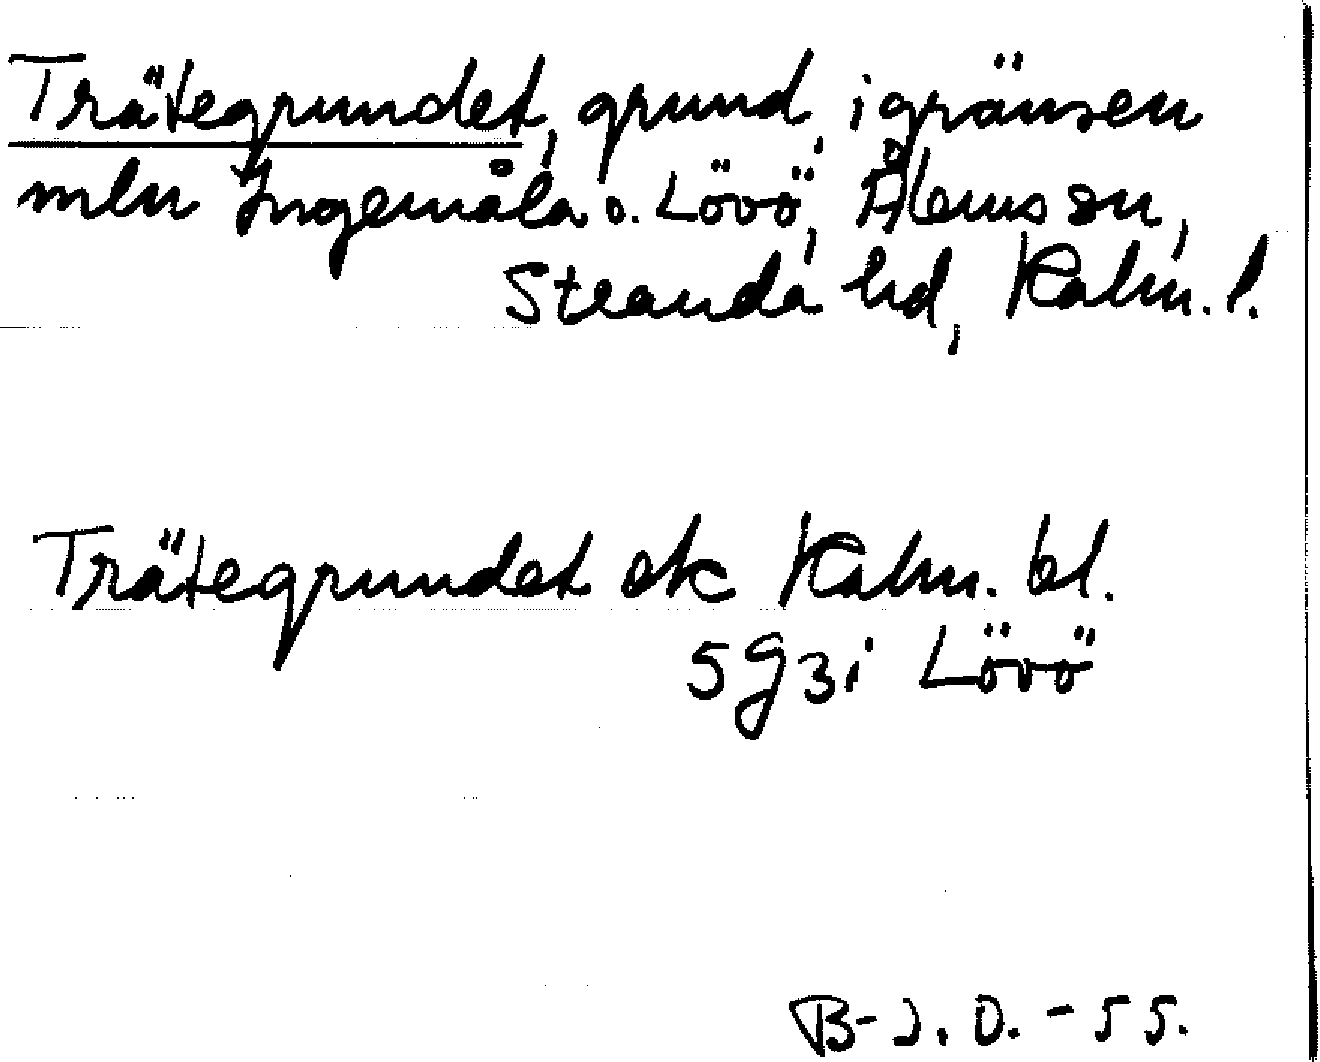 Trätegrundet, grund, i gränsen
mln Ingemåla o. Lövö, Ålems sn,
Stranda hd, Kalm. l.
Trätegrundet ek Kalm. bl.
5 G 3 i Lövö
B-J. O. - 55.